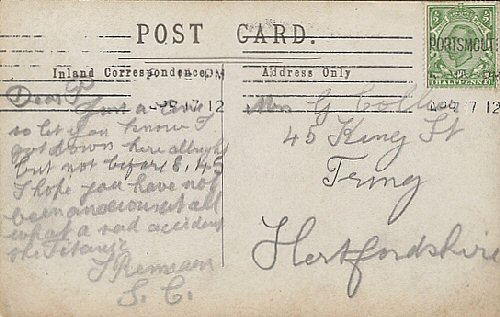 POST CARD.
Inland Correspondence. Address Only
PORTSMOUTH
AP 17 12
Dear P
Just a line
so let you know I
got down here allright
but not before 8.45
I hope you have not
been anxious at all
what a sad accident
the Titanic
S. C.
Mrs G
45 King St
Tring
Hertfordshire